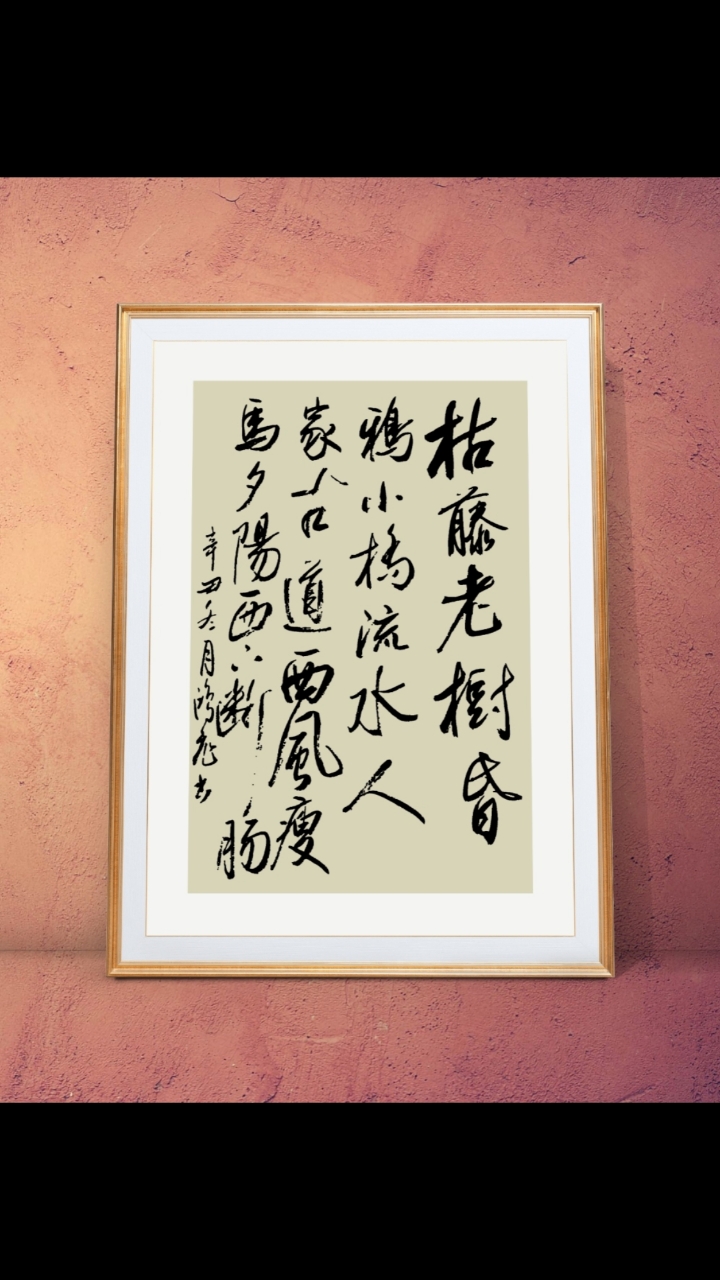 枯藤老樹昏
鴉小橋流水人
家古道西風瘦
馬夕陽西下斷腸
辛丑冬月